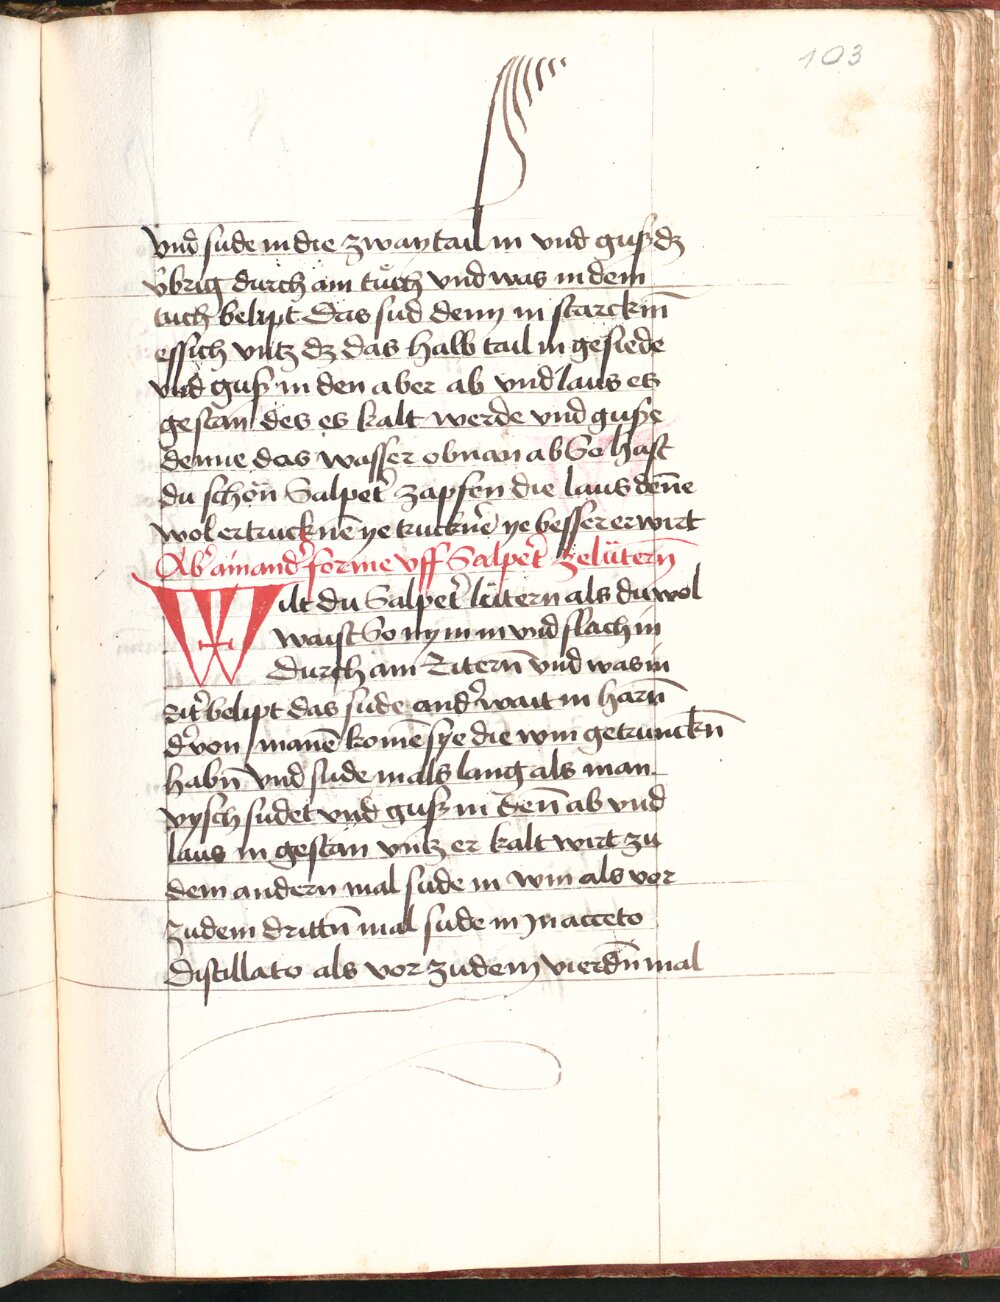 103
vnd sude in die zway tail in vnd guß dz
v̈brig durch ain tuͦch vnd was in dem
tuch belipt Das sud denn in starckin̄
essich vntz dz das halb tail in gesiede
vnd guß in den aber ab vnd laus es
gestan des es kalt werde vnd guße
denne das wasser obnan ab So hast
du schön Salpet᷑ zapfen die laus den̄e
wol ertrucknē ye truckn᷑ ye besser er wirt
Ab᷑ ain and᷑ forme vff Salpet᷑ ze lütern̄
Wilt du Salpet᷑ lütern als du wol
waist So nym in vnd flach in
Durch ain Ritern̄ vnd was in
rit᷑ belipt das sude and᷑ wait in harn̄
d᷑ von manē komē sye die win getrunckn̄
habn̄ vnd sude in als lang als man
vysch sudet vnd guß in den̄ ab vnd
laus in gestan vntz er kalt wirt zu
dem andern mal sude in win als vor
zu dem drittn̄ mal sude in Jn acceto
Distillato als vor zu dem vierdn̄ mal